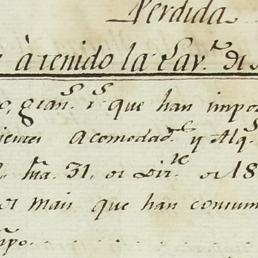 Perdida
à tenido la Lavr.ª de
o, gran.s y.s que han impor
sieres acomodad.s y Alq.s
hta. 31, de Dic.re de 18
or mair que han consum
mpo. . . . . . . . . .